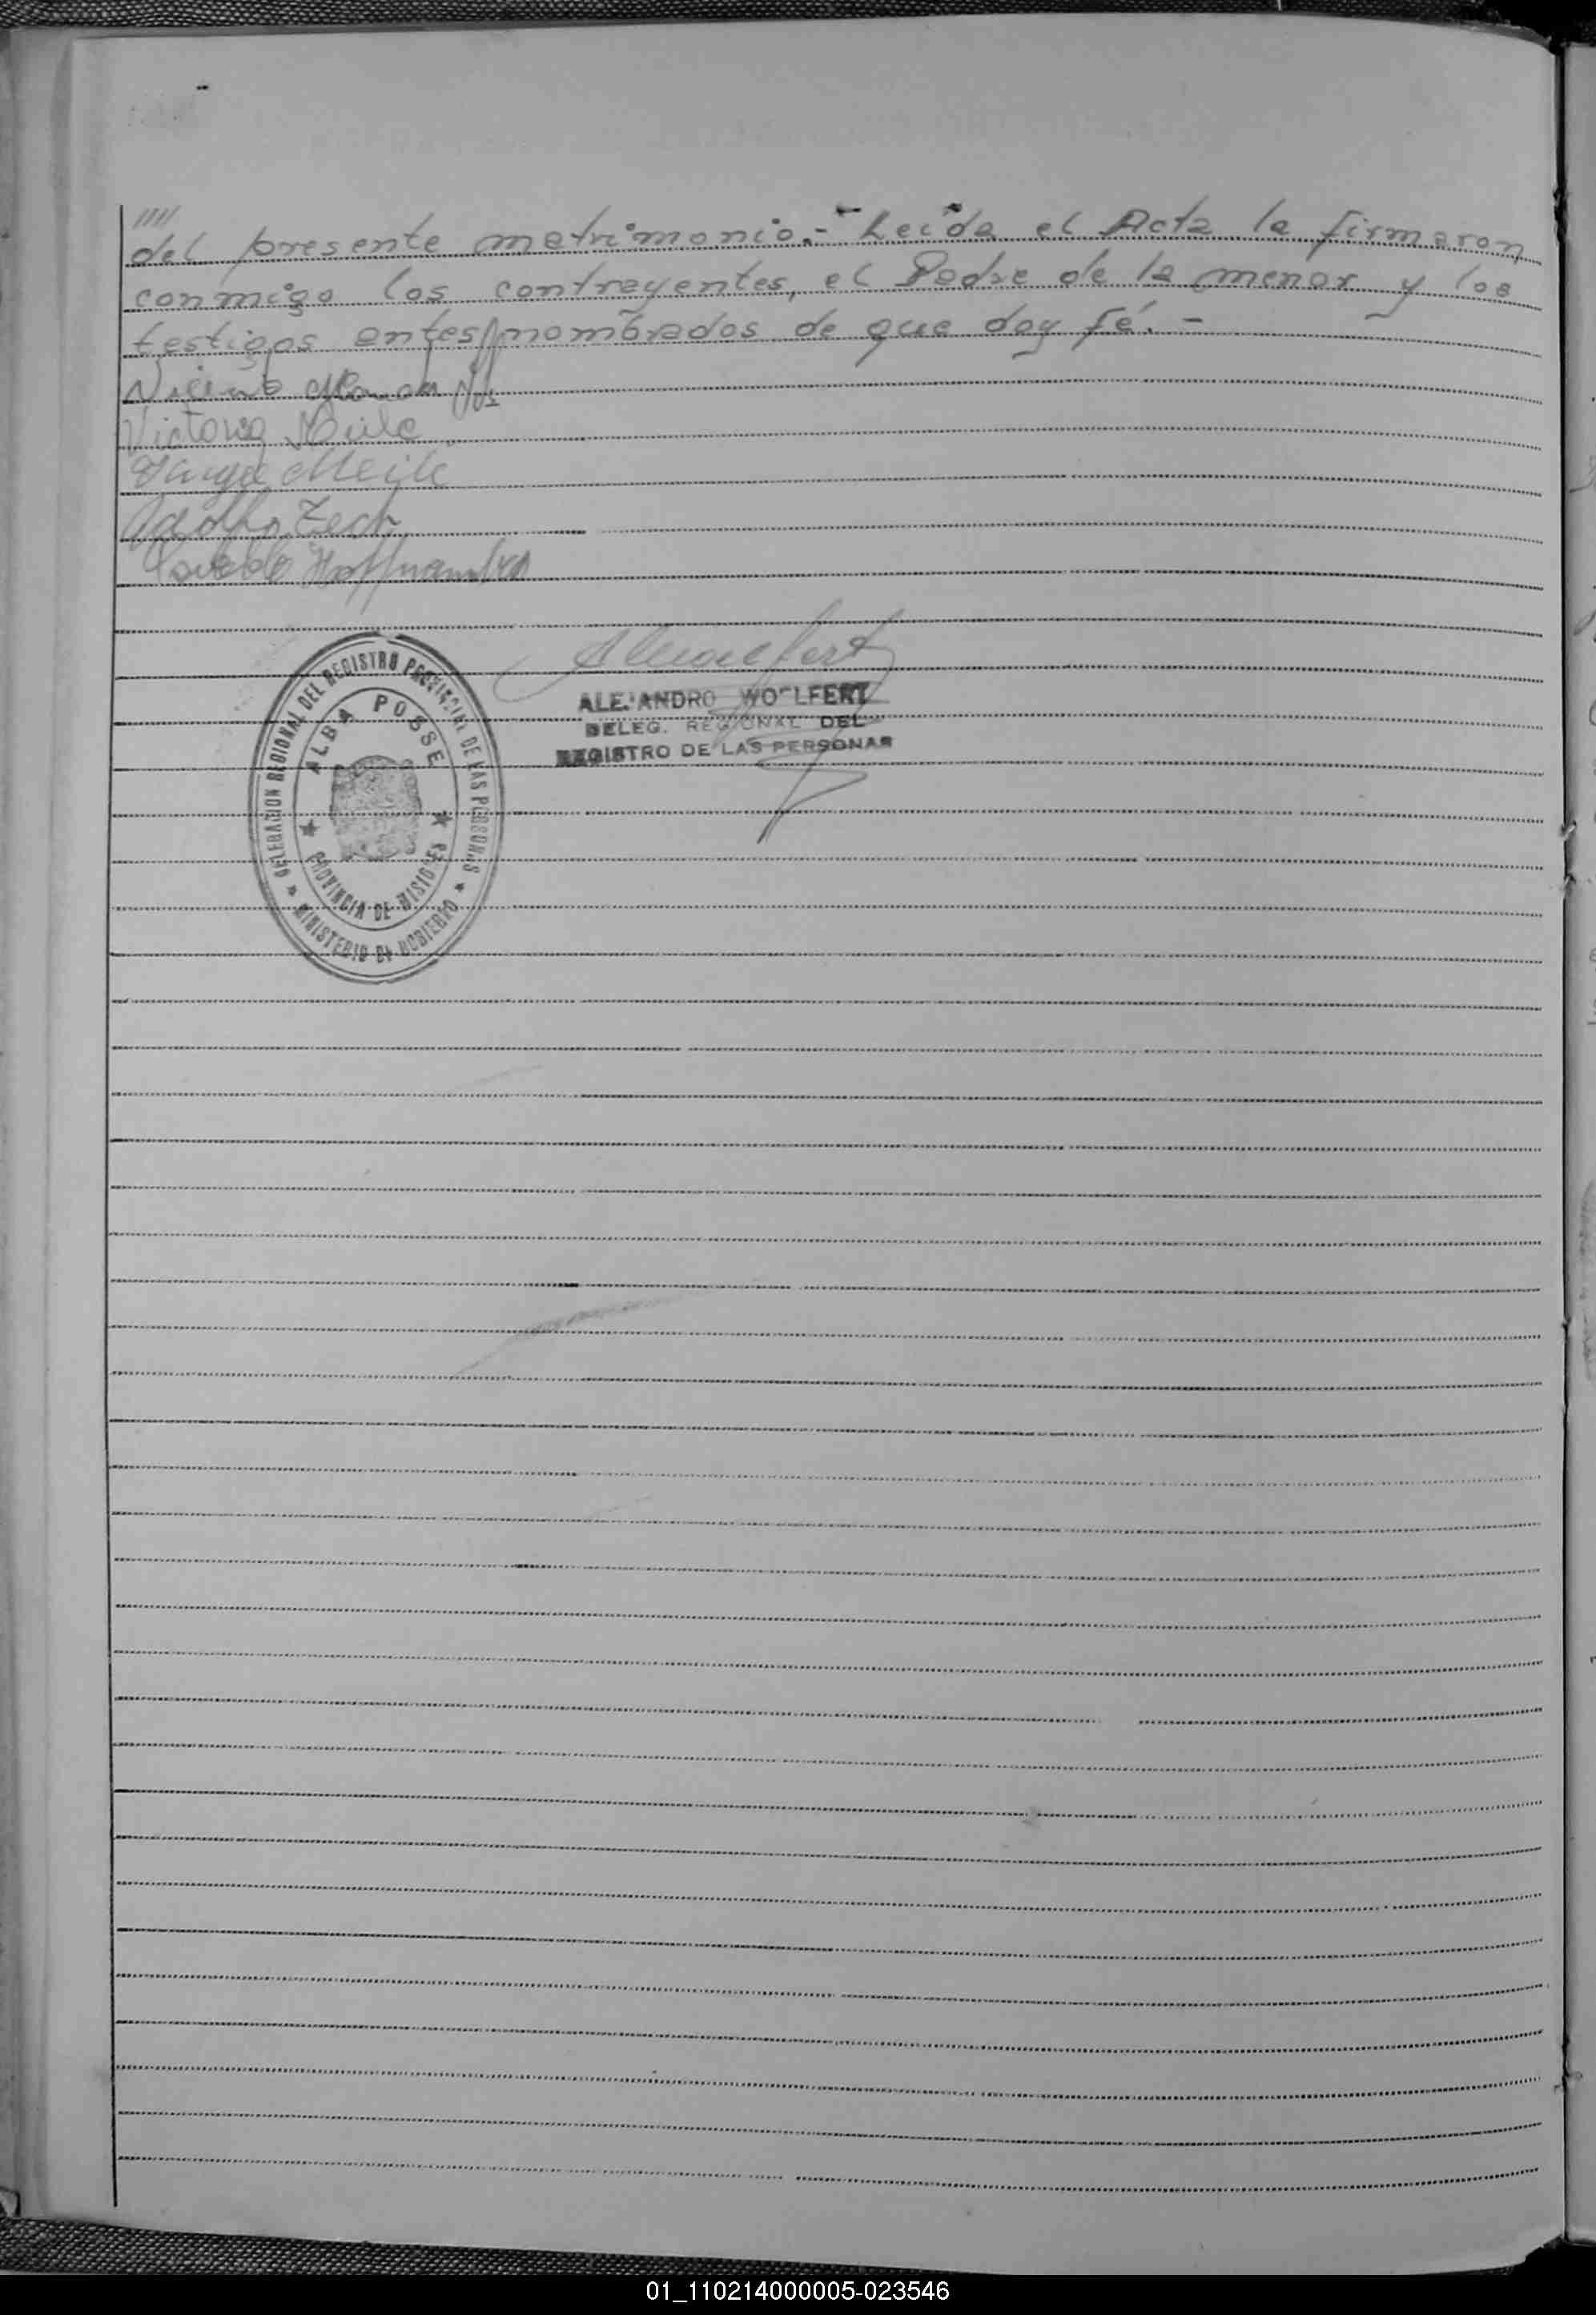 ////
del presente matrimonio.- Leida el Acta la firmaron
conmigo los contrayentes, el Padre de la menor y los
testigos antes nombrados de que doy fé. -
Victoria
Adolfo Zech
ALEJANDRO WOELFERT
DELEG. REGIONAL DEL
REGISTRO DE LAS PERSONAS
DELEGACION REGIONAL DEL REGISTRO PROVINCIAL DE LAS PERSONAS
ALBA POSSE
PROVINCIA DE MISIONES
MINISTERIO DE GOBIERNO
01_110214000005-023546